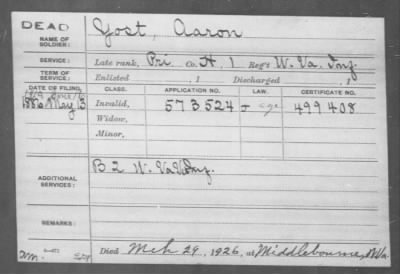 DEAD
NAME OF SOLDIER:
Yost, Aaron
SERVICE:
Late rank, Pri Co. H, 1 Reg't W. Va. Inf.
TERM OF SERVICE:
Enlisted , 1 Discharged , 1
DATE OF FILING.
CLASS.
APPLICATION NO.
LAW.
CERTIFICATE NO.
1886 May 13
Invalid,
573524
499408
Widow,
Minor,
ADDITIONAL SERVICES:
B 2 W. Va V. Inf.
REMARKS:
Died Mch 29, 1926, at Middlebourne, W Va